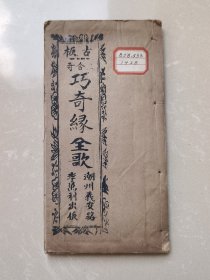 古板
巧奇緣全歌
潮州義安路
李萬利出版